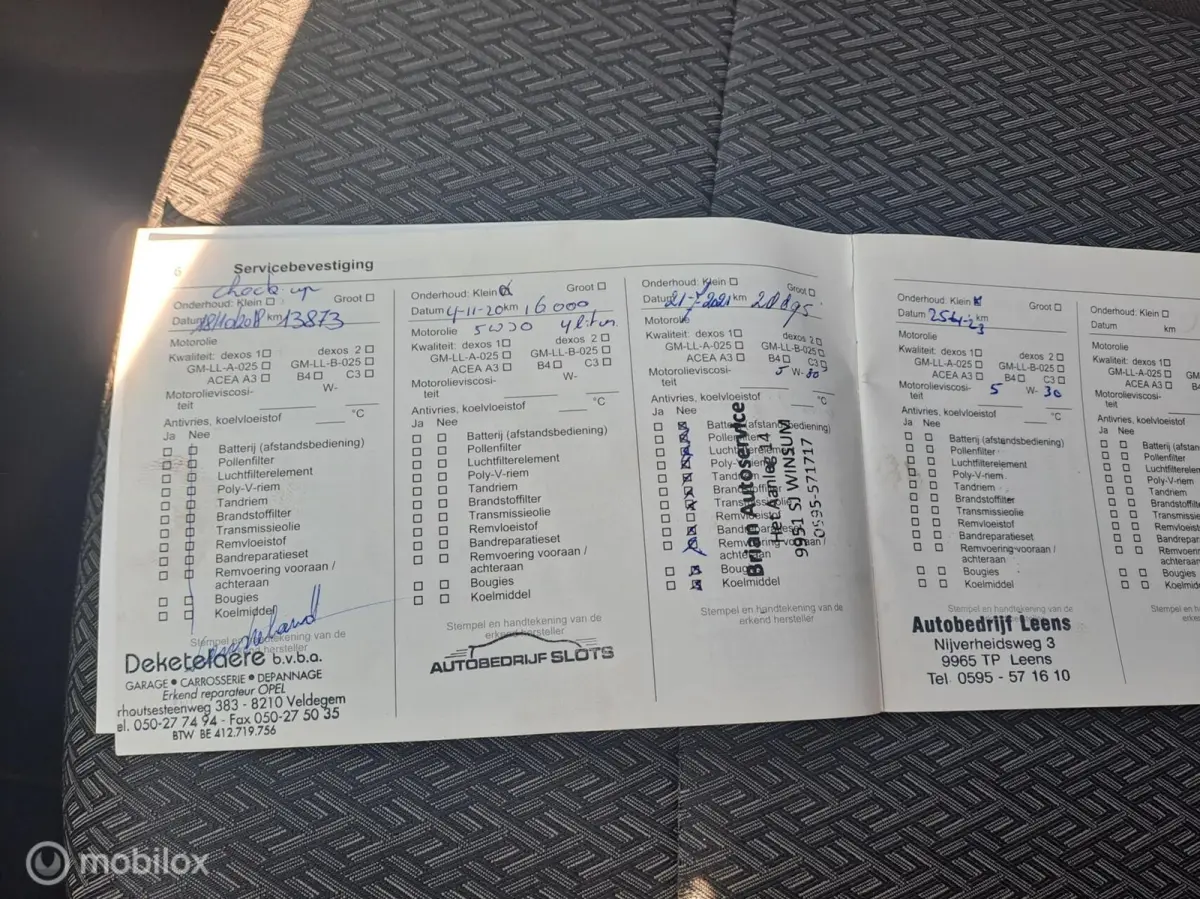 6 Servicebevestiging
check up
Onderhoud: Klein Groot
Datum 18/10/2018 km 13873
Motorolie
Kwaliteit: dexos 1 dexos 2
GM-LL-A-025 GM-LL-B-025
ACEA A3 B4 C3
Motorolieviscosi-
teit W-
Antivries, koelvloeistof °C
Ja Nee
Batterij (afstandsbediening)
Pollenfilter
Luchtfilterelement
Poly-V-riem
Tandriem
Brandstoffilter
Transmissieolie
Remvloeistof
Bandreparatieset
Remvoering vooraan /
achteraan
Bougies
Koelmiddel
Stempel en handtekening van de
erkend hersteller
Deketelaere b.v.b.a.
GARAGE • CARROSSERIE • DEPANNAGE
Erkend reparateur OPEL
rhoutsesteenweg 383 - 8210 Veldegem
el. 050-27 74 94 - Fax 050-27 50 35
BTW BE 412.719.756
Onderhoud: Klein Groot
Datum 4-11-20 km 16000
Motorolie 5W30 4 liter
Kwaliteit: dexos 1 dexos 2
GM-LL-A-025 GM-LL-B-025
ACEA A3 B4 C3
Motorolieviscosi-
teit W-
Antivries, koelvloeistof °C
Ja Nee
Batterij (afstandsbediening)
Pollenfilter
Luchtfilterelement
Poly-V-riem
Tandriem
Brandstoffilter
Transmissieolie
Remvloeistof
Bandreparatieset
Remvoering vooraan /
achteraan
Bougies
Koelmiddel
Stempel en handtekening van de
erkend hersteller
AUTOBEDRIJF SLOTS
Onderhoud: Klein Groot
Datum 21-7-2021 km
Motorolie
Kwaliteit: dexos 1 dexos 2
GM-LL-A-025 GM-LL-B-025
ACEA A3 B4 C3
Motorolieviscosi- 5 W- 30
teit
Antivries, koelvloeistof °C
Ja Nee
Batterij (afstandsbediening)
Pollenfilter
Luchtfilterelement
Poly-V-riem
Tandriem
Brandstoffilter
Transmissieolie
Remvloeistof
Bandreparatieset
Remvoering vooraan /
achteraan
Bougies
Koelmiddel
Brian Autoservice
Het Aanleg 14
9951 SJ WINSUM
0595-571717
Stempel en handtekening van de
erkend hersteller
Onderhoud: Klein Groot
Datum 25-4-23 km
Motorolie
Kwaliteit: dexos 1 dexos 2
GM-LL-A-025 GM-LL-B-025
ACEA A3 B4 C3
Motorolieviscosi- 5 W- 30
teit
Antivries, koelvloeistof °C
Ja Nee
Batterij (afstandsbediening)
Pollenfilter
Luchtfilterelement
Poly-V-riem
Tandriem
Brandstoffilter
Transmissieolie
Remvloeistof
Bandreparatieset
Remvoering vooraan /
achteraan
Bougies
Koelmiddel
Stempel en handtekening van de
erkend hersteller
Autobedrijf Leens
Nijverheidsweg 3
9965 TP Leens
Tel. 0595 - 57 16 10
Onderhoud: Klein
Datum km
Motorolie
Kwaliteit: dexos 1
GM-LL-A-025 GM
ACEA A3
Motorolieviscosi-
teit
Antivries, koelvloeistof
Ja Nee
Batterij (afstands
Pollenfilter
Luchtfilterelement
Poly-V-riem
Tandriem
Brandstoffilter
Transmissieolie
Remvloeistof
Bandreparatieset
Remvoering voora
achteraan
Bougies
Koelmiddel
Stempel en h
mobilox